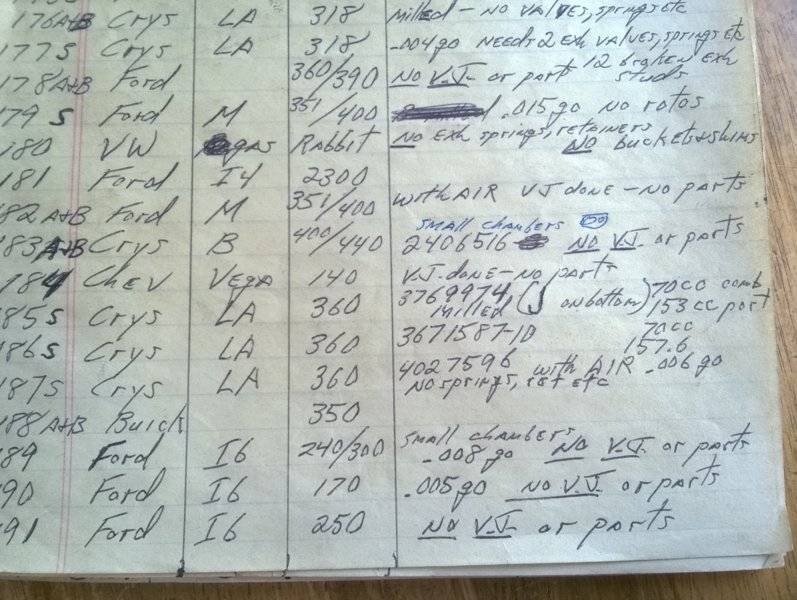 176A+B Crys LA 318 Milled - NO VALVES, springs etc
177S Crys LA 318 .004go NEEDS 2 Exh VALVES, springs etc
178A+B Ford 360/390 NO V.J. or part 12 broken Exh studs
179 S Ford M 351/400 .015go NO rotos
180 VW gas Rabbit NO Exh springs, retainers NO buckets + shims
181 Ford I4 2300
82 A+B Ford M 351/400 with AIR VJ done - NO parts
83 A+B Crys B 400/440 small chambers 2406516 NO V.J. or parts
184 Chev Vega 140 V.J. done - NO parts
85s Crys LA 360 3769974 Milled (J on bottom) 70cc comb 153cc port
86s Crys LA 360 3671587-1D 70cc 157.6
187s Crys LA 360 4027596 with AIR .006go NO springs, ret etc
188 A+B Buick 350
89 Ford I6 240/300 small chambers .008go NO V.J. or parts
90 Ford I6 170 .005go NO V.J. or parts
91 Ford I6 250 NO V.J. or parts